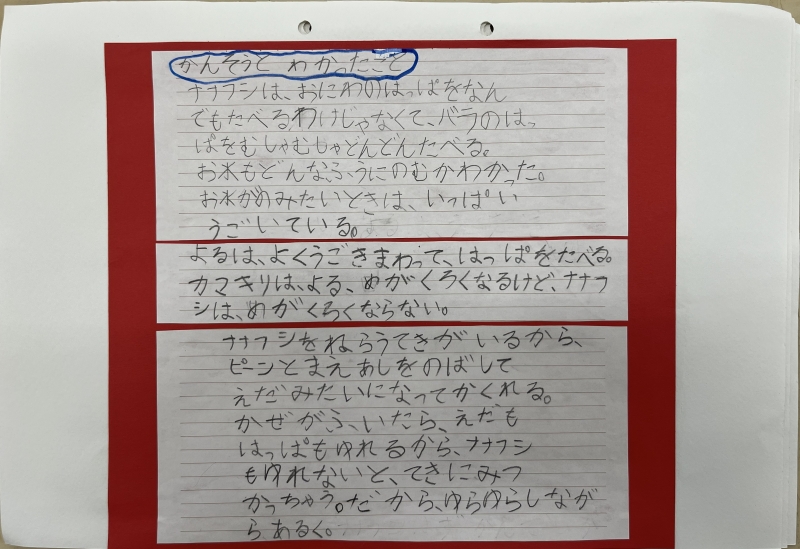 かんそうと わかったこと
ナナフシは、おにわのはっぱをなん
でもたべるわけじゃなくて、バラのはっ
ぱをむしゃむしゃどんどんたべる。
お水もどんなふうにのむかわかった。
お水がのみたいときは、いっぱい
うごいている。
よるは、よくうごきまわって、はっぱをたべる。
カマキリは、よる、めがくろくなるけど、ナナフ
シは、めがくろくならない。
ナナフシをねらうてきがいるから、
ピーンとまえあしをのばして
えだみたいになってかくれる。
かぜがふいたら、えだも
はっぱもゆれるから、ナナフシ
もゆれないと、てきにみつ
かっちゃう。だから、ゆらゆらしなが
らあるく。